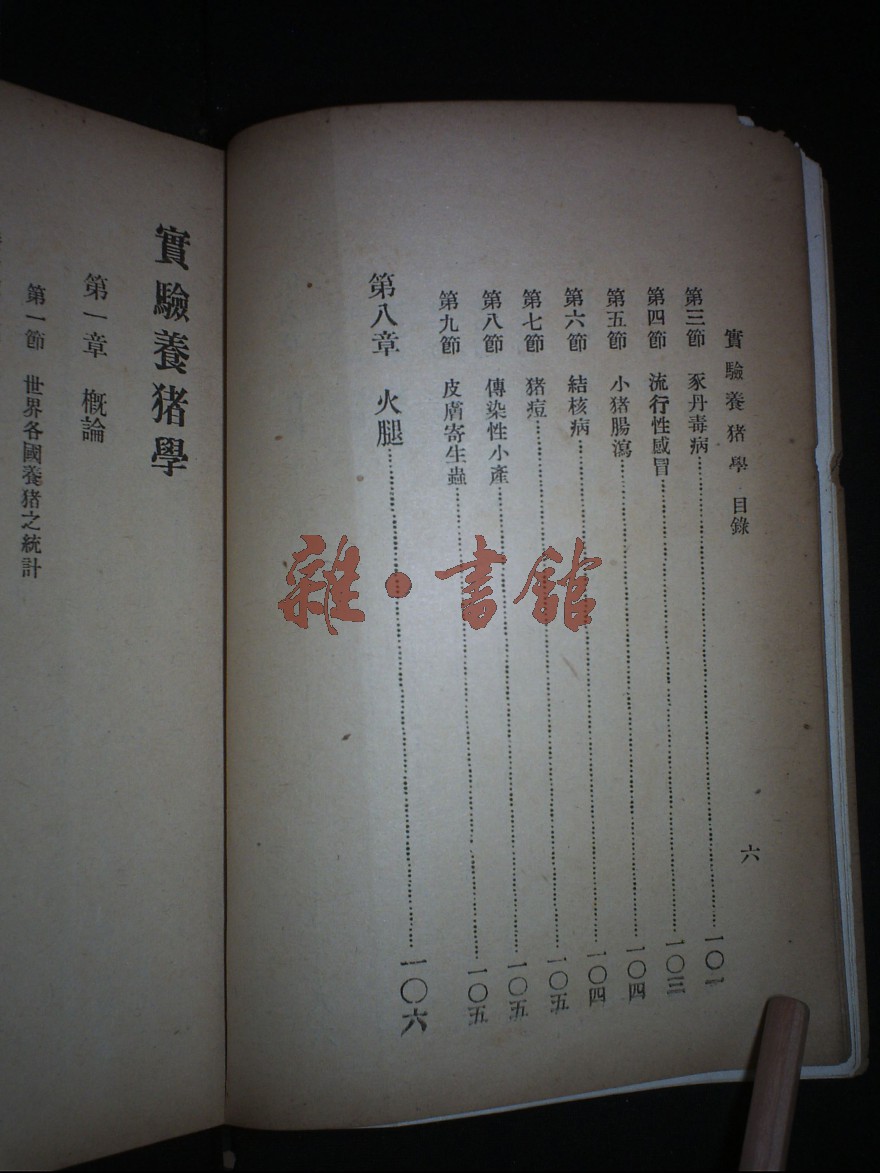 實驗養猪學 目錄 六
第三節 豕丹毒病 一〇一
第四節 流行性感冒 一〇三
第五節 小猪腸瀉 一〇四
第六節 結核病 一〇四
第七節 猪痘 一〇五
第八節 傳染性小產 一〇五
第九節 皮膚寄生蟲 一〇五
第八章 火腿 一〇六
實驗養猪學
第一章 概論
第一節 世界各國養猪之統計
雜·書館